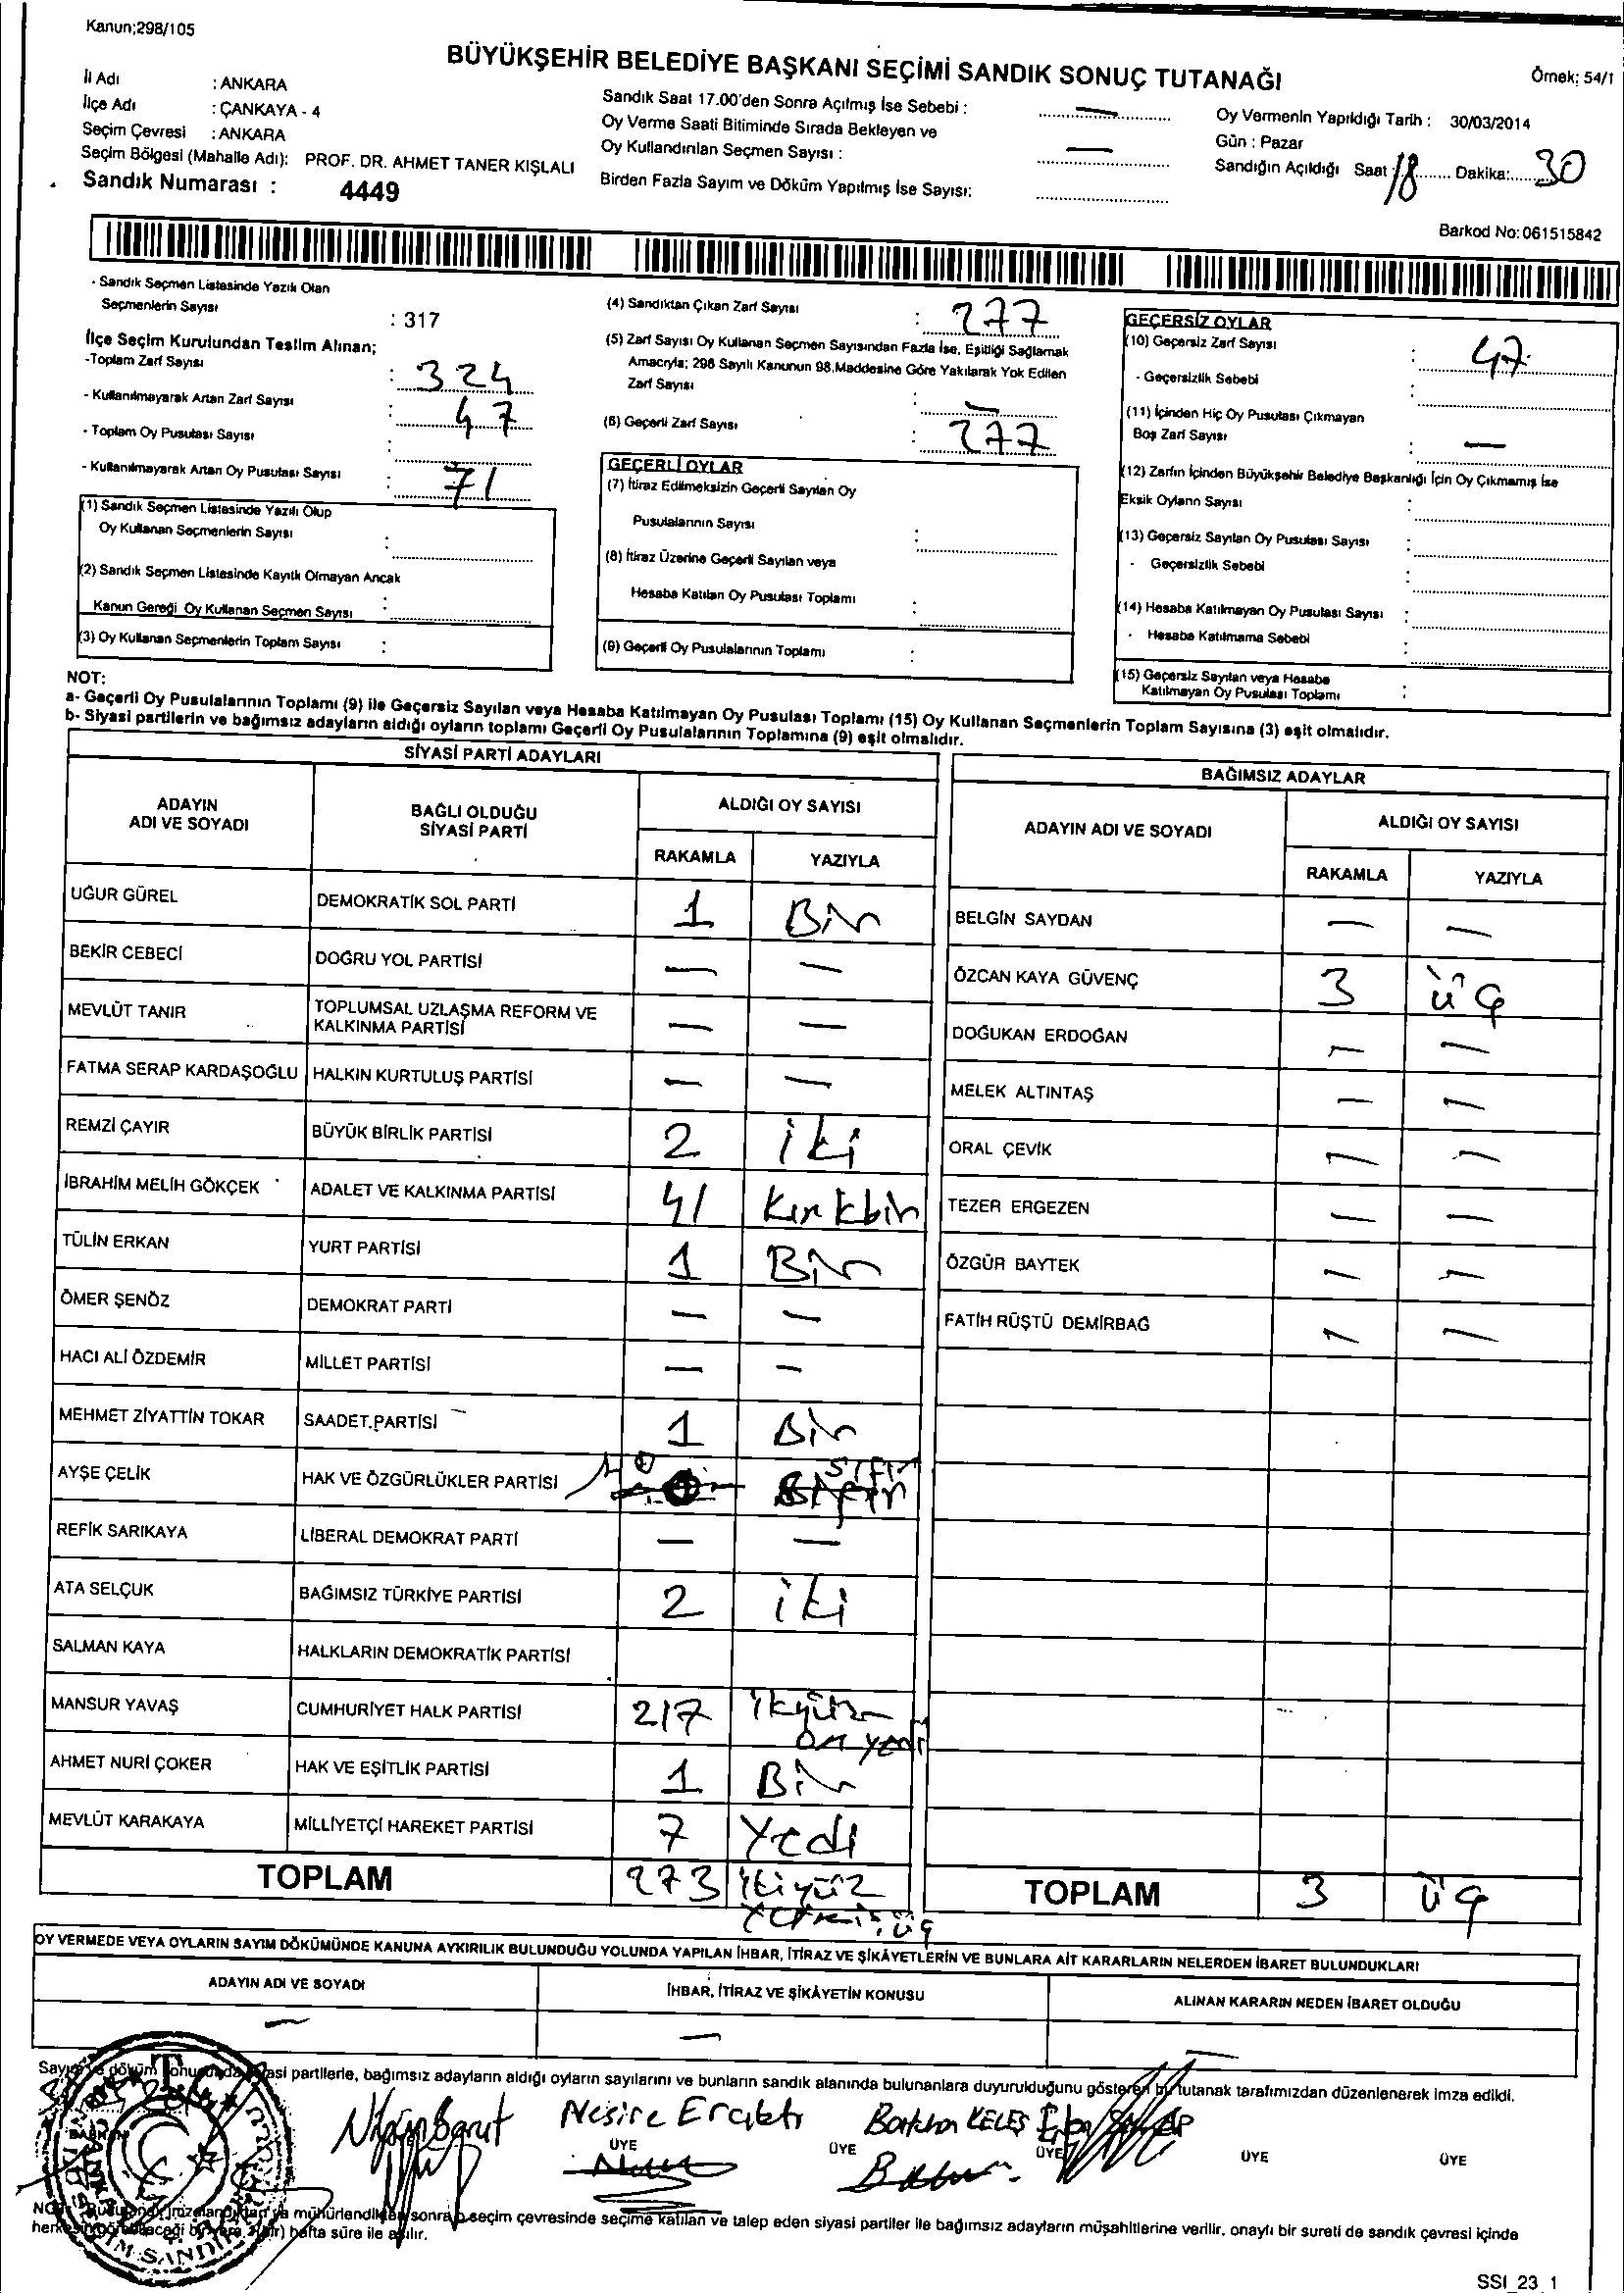 Kanun;298/105
BÜYÜKŞEHİR BELEDİYE BAŞKANI SEÇİMİ SANDIK SONUÇ TUTANAĞI
Örnek: 54/1
İl Adı : ANKARA
İlçe Adı : ÇANKAYA - 4
Seçim Çevresi : ANKARA
Seçim Bölgesi (Mahalle Adı): PROF. DR. AHMET TANER KIŞLALI
Sandık Numarası : 4449
Sandık Saat 17.00'den Sonra Açılmış İse Sebebi : —
Oy Verme Saati Bitiminde Sırada Bekleyen ve
Oy Kullandırılan Seçmen Sayısı : —
Birden Fazla Sayım ve Döküm Yapılmış İse Sayısı:
Oy Vermenin Yapıldığı Tarih : 30/03/2014
Gün : Pazar
Sandığın Açıldığı Saat : 18 Dakika: 30
Barkod No: 061515842
- Sandık Seçmen Listesinde Yazılı Olan
Seçmenlerin Sayısı : 317
İlçe Seçim Kurulundan Teslim Alınan;
-Toplam Zarf Sayısı : 324
- Kullanılmayarak Artan Zarf Sayısı : 47
- Toplam Oy Pusulası Sayısı :
- Kullanılmayarak Artan Oy Pusulası Sayısı : 71
(1) Sandık Seçmen Listesinde Yazılı Olup
Oy Kullanan Seçmenlerin Sayısı :
(2) Sandık Seçmen Listesinde Kayıtlı Olmayan Ancak
Kanun Gereği Oy Kullanan Seçmen Sayısı :
(3) Oy Kullanan Seçmenlerin Toplam Sayısı :
(4) Sandıktan Çıkan Zarf Sayısı : 277
(5) Zarf Sayısı Oy Kullanan Seçmen Sayısından Fazla İse, Eşitliği Sağlamak
Amacıyla; 298 Sayılı Kanunun 98.Maddesine Göre Yakılarak Yok Edilen
Zarf Sayısı : —
(6) Geçerli Zarf Sayısı : 277
GEÇERLİ OYLAR
(7) İtiraz Edilmeksizin Geçerli Sayılan Oy
Pusulalarının Sayısı :
(8) İtiraz Üzerine Geçerli Sayılan veya
Hesaba Katılan Oy Pusulası Toplamı :
(9) Geçerli Oy Pusulalarının Toplamı :
GEÇERSİZ OYLAR
(10) Geçersiz Zarf Sayısı : 47
- Geçersizlik Sebebi :
(11) İçinden Hiç Oy Pusulası Çıkmayan
Boş Zarf Sayısı : —
(12) Zarfın İçinden Büyükşehir Belediye Başkanlığı İçin Oy Çıkmamış İse
Eksik Oyların Sayısı :
(13) Geçersiz Sayılan Oy Pusulası Sayısı :
- Geçersizlik Sebebi :
(14) Hesaba Katılmayan Oy Pusulası Sayısı :
- Hesaba Katılmama Sebebi :
(15) Geçersiz Sayılan veya Hesaba
Katılmayan Oy Pusulası Toplamı :
NOT:
a- Geçerli Oy Pusulalarının Toplamı (9) ile Geçersiz Sayılan veya Hesaba Katılmayan Oy Pusulası Toplamı (15) Oy Kullanan Seçmenlerin Toplam Sayısına (3) eşit olmalıdır.
b- Siyasi partilerin ve bağımsız adayların aldığı oyların toplamı Geçerli Oy Pusulalarının Toplamına (9) eşit olmalıdır.
SİYASİ PARTİ ADAYLARI
ADAYIN ADI VE SOYADI BAĞLI OLDUĞU SİYASİ PARTİ ALDIĞI OY SAYISI
RAKAMLA YAZIYLA
UĞUR GÜREL DEMOKRATİK SOL PARTİ 1 Bir
BEKİR CEBECİ DOĞRU YOL PARTİSİ — —
MEVLÜT TANIR TOPLUMSAL UZLAŞMA REFORM VE KALKINMA PARTİSİ — —
FATMA SERAP KARDAŞOĞLU HALKIN KURTULUŞ PARTİSİ — —
REMZİ ÇAYIR BÜYÜK BİRLİK PARTİSİ 2 iki
İBRAHİM MELİH GÖKÇEK ADALET VE KALKINMA PARTİSİ 41 Kırkbir
TÜLİN ERKAN YURT PARTİSİ 1 Bir
ÖMER ŞENÖZ DEMOKRAT PARTİ — —
HACI ALİ ÖZDEMİR MİLLET PARTİSİ — —
MEHMET ZİYATTİN TOKAR SAADET PARTİSİ 1 Bir
AYŞE ÇELİK HAK VE ÖZGÜRLÜKLER PARTİSİ 0 sıfır
REFİK SARIKAYA LİBERAL DEMOKRAT PARTİ — —
ATA SELÇUK BAĞIMSIZ TÜRKİYE PARTİSİ 2 iki
SALMAN KAYA HALKLARIN DEMOKRATİK PARTİSİ
MANSUR YAVAŞ CUMHURİYET HALK PARTİSİ 217 ikiyüz on yedi
AHMET NURİ ÇOKER HAK VE EŞİTLİK PARTİSİ 1 Bir
MEVLÜT KARAKAYA MİLLİYETÇİ HAREKET PARTİSİ 7 Yedi
TOPLAM 273 ikiyüz yetmişüç
BAĞIMSIZ ADAYLAR
ADAYIN ADI VE SOYADI ALDIĞI OY SAYISI
RAKAMLA YAZIYLA
BELGİN SAYDAN — —
ÖZCAN KAYA GÜVENÇ 3 üç
DOĞUKAN ERDOĞAN — —
MELEK ALTINTAŞ — —
ORAL ÇEVİK — —
TEZER ERGEZEN — —
ÖZGÜR BAYTEK — —
FATİH RÜŞTÜ DEMİRBAĞ — —
TOPLAM 3 üç
OY VERMEDE VEYA OYLARIN SAYIM DÖKÜMÜNDE KANUNA AYKIRILIK BULUNDUĞU YOLUNDA YAPILAN İHBAR, İTİRAZ VE ŞİKÂYETLERİN VE BUNLARA AİT KARARLARIN NELERDEN İBARET BULUNDUKLARI
ADAYIN ADI VE SOYADI İHBAR, İTİRAZ VE ŞİKÂYETİN KONUSU ALINAN KARARIN NEDEN İBARET OLDUĞU
— — —
Sayım ve döküm sonucunda siyasi partilerle, bağımsız adayların aldığı oyların sayılarını ve bunların sandık alanında bulunanlara duyurulduğunu gösteren bu tutanak tarafımızdan düzenlenerek imza edildi.
Nesire
KELEŞ
BAŞKAN ÜYE ÜYE ÜYE ÜYE ÜYE
mühürlendikten sonra seçim çevresinde seçime katılan ve talep eden siyasi partiler ile bağımsız adayların müşahitlerine verilir, onaylı bir sureti de sandık çevresi içinde
hafta süre ile asılır.
SSI_23_1